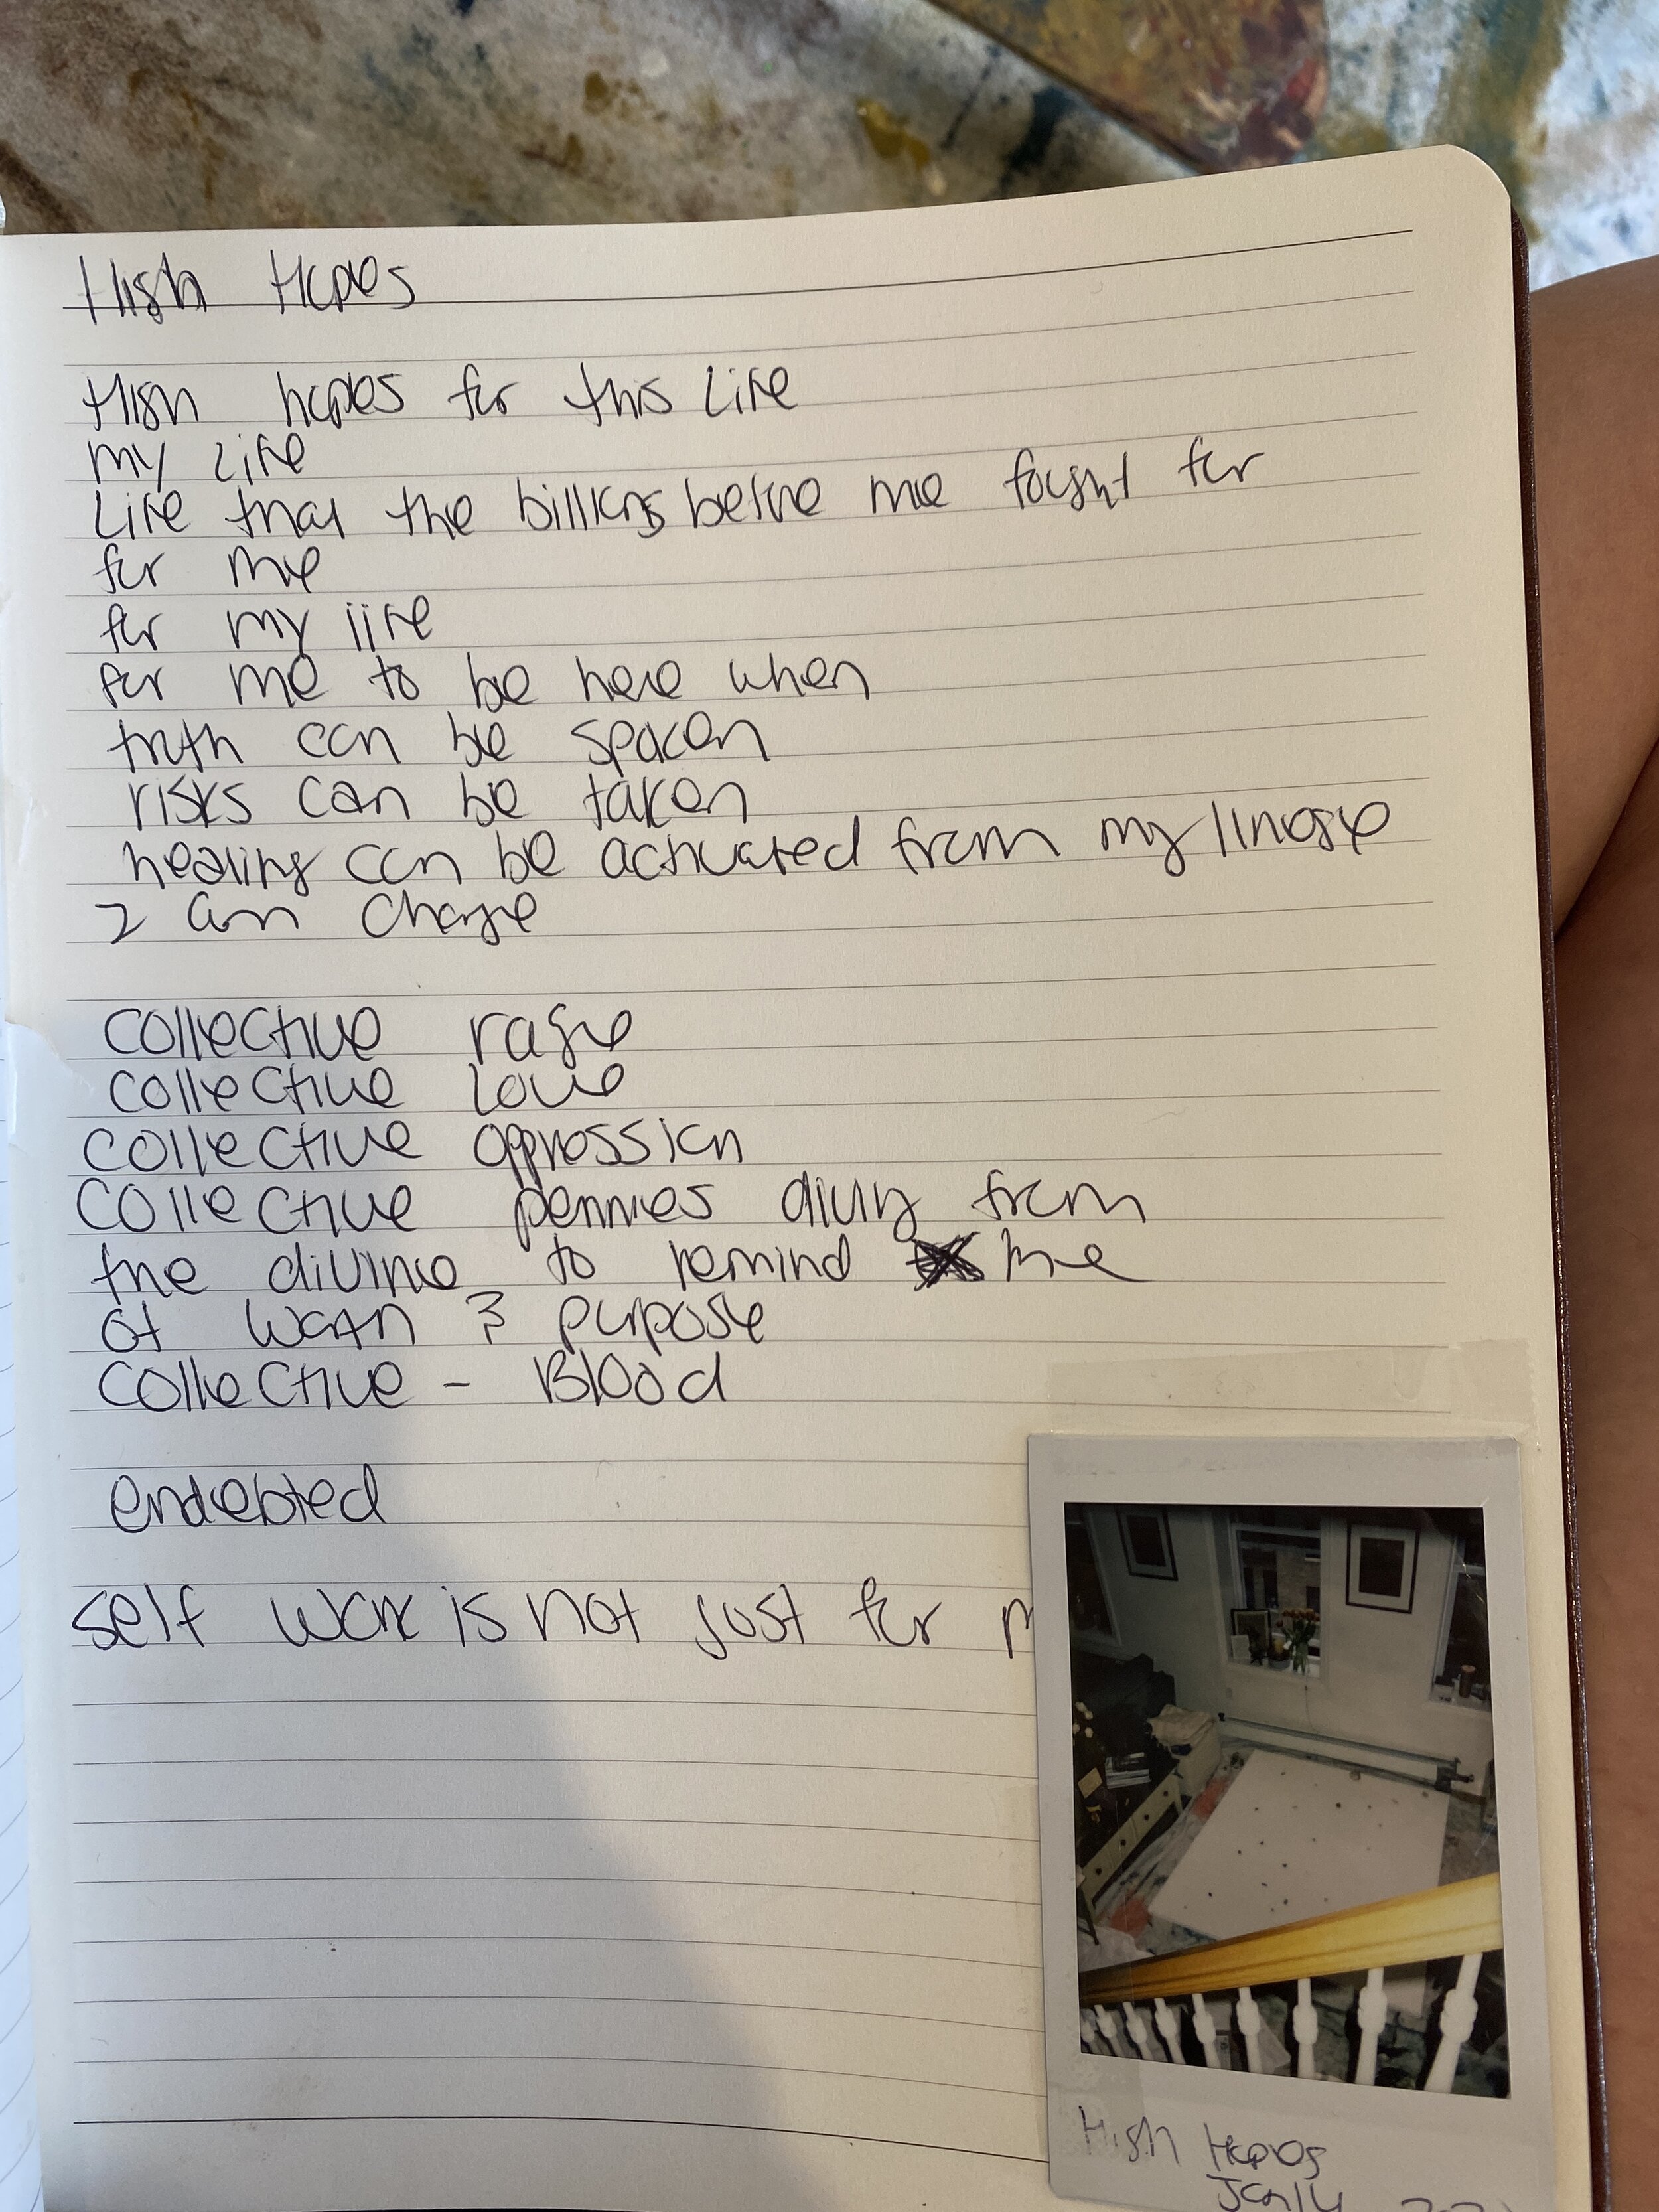 High Hopes
High hopes for this life
my life
Life that the billions before me fought for
for me
for my life
for me to be here when
truth can be spoken
risks can be taken
healing can be activated from my linage
I am change
collective rage
collective love
collective oppression
collective pennies diving from
the divine to remind me
of worth & purpose
collective - Blood
endebted
self work is not just for m
High Hopes
Jan 14